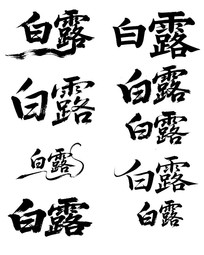 白露
白露
白露
白露
白露
白露
白露
白露
白露